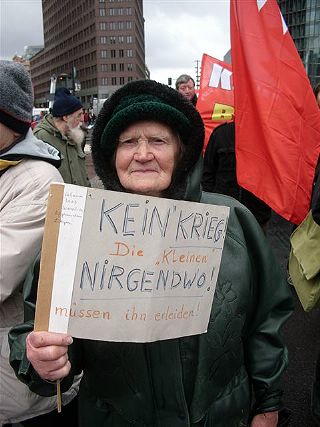 KEIN KRIEG!
Die „Kleinen"
NIRGENDWO!
müssen ihn erleiden!